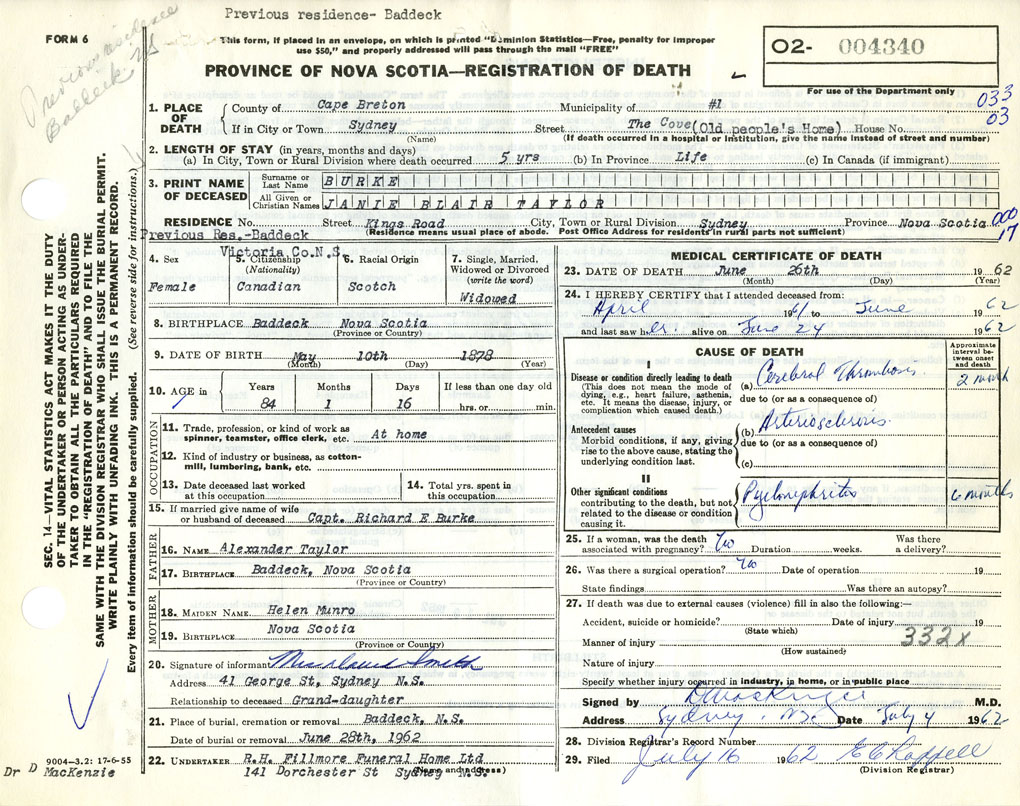 Previous residence- Baddeck
Previous residence
Baddeck N S
FORM 6
This form, if placed in an envelope, on which is printed "Dominion Statistics—Free, penalty for improper
use $50," and properly addressed will pass through the mail "FREE"
O2- 004340
PROVINCE OF NOVA SCOTIA—REGISTRATION OF DEATH
For use of the Department only
033
03
1. PLACE OF DEATH
County of Cape Breton Municipality of #1
If in City or Town Sydney Street The Cove(Old people's Home) House No.
(Name) (If death occurred in a hospital or institution, give the name instead of street and number)
2. LENGTH OF STAY (in years, months and days)
(a) In City, Town or Rural Division where death occurred 5 yrs (b) In Province Life (c) In Canada (if immigrant)
3. PRINT NAME OF DECEASED
Surname or Last Name BURKE
All Given or Christian Names JANIE BLAIR TAYLOR
RESIDENCE No. Street Kings Road City, Town or Rural Division Sydney Province Nova Scotia
000
17
(Residence means usual place of abode. Post Office Address for residents in rural parts not sufficient)
Previous Res.-Baddeck
Victoria Co.N.S.
4. Sex
Female
5. Citizenship
(Nationality)
Canadian
6. Racial Origin
Scotch
7. Single, Married, Widowed or Divorced
(write the word)
Widowed
8. BIRTHPLACE Baddeck Nova Scotia
(Province or Country)
9. DATE OF BIRTH May 10th 1878
(Month) (Day) (Year)
10. AGE in
Years Months Days If less than one day old
84 1 16 hrs. or min.
OCCUPATION
11. Trade, profession, or kind of work as
spinner, teamster, office clerk, etc. At home
12. Kind of industry or business, as cotton-
mill, lumbering, bank, etc.
13. Date deceased last worked
at this occupation
14. Total yrs. spent in
this occupation
15. If married give name of wife
or husband of deceased Capt. Richard E Burke
FATHER
16. NAME Alexander Taylor
17. BIRTHPLACE Baddeck, Nova Scotia
(Province or Country)
MOTHER
18. MAIDEN NAME Helen Munro
19. BIRTHPLACE Nova Scotia
(Province or Country)
20. Signature of informant Smith
Address 41 George St, Sydney N.S.
Relationship to deceased Grand-daughter
21. Place of burial, cremation or removal Baddeck, N.S.
Date of burial or removal June 28th, 1962
22. UNDERTAKER R.H. Fillmore Funeral Home Ltd
141 Dorchester St Sydney N.S.
(Name and address)
MEDICAL CERTIFICATE OF DEATH
23. DATE OF DEATH June 26th 1962
(Month) (Day) (Year)
24. I HEREBY CERTIFY that I attended deceased from:
April 1961 to June 1962
and last saw her alive on June 24 1962
CAUSE OF DEATH
Approximate interval between onset and death
I
Disease or condition directly leading to death
(This does not mean the mode of
dying, e.g., heart failure, asthenia,
etc. It means the disease, injury, or
complication which caused death.)
(a) Cerebral Thrombosis 2 month
due to (or as a consequence of)
Antecedent causes
Morbid conditions, if any, giving
rise to the above cause, stating the
underlying condition last.
(b) Arteriosclerosis
due to (or as a consequence of)
(c)
II
Other significant conditions
contributing to the death, but not
related to the disease or condition
causing it.
Pyelonephritis 6 months
25. If a woman, was the death
associated with pregnancy? No Duration weeks. Was there
a delivery?
26. Was there a surgical operation? No Date of operation 19
State findings Was there an autopsy?
27. If death was due to external causes (violence) fill in also the following:—
Accident, suicide or homicide? Date of injury 19
(State which)
Manner of injury 332X
(How sustained)
Nature of injury
Specify whether injury occurred in industry, in home, or in public place
Signed by D MacKenzie M.D.
Address Sydney, N.S. Date July 4 1962
28. Division Registrar's Record Number
29. Filed July 16 1962 E C Rappell
(Division Registrar)
SEC. 14—VITAL STATISTICS ACT MAKES IT THE DUTY
OF THE UNDERTAKER OR PERSON ACTING AS UNDER-
TAKER TO OBTAIN ALL THE PARTICULARS REQUIRED
IN THE "REGISTRATION OF DEATH" AND TO FILE THE
SAME WITH THE DIVISION REGISTRAR WHO SHALL ISSUE THE BURIAL PERMIT.
WRITE PLAINLY WITH UNFADING INK. THIS IS A PERMANENT RECORD.
Every item of information should be carefully supplied. (See reverse side for instructions.)
9004—3.2: 17-6-55
Dr D MacKenzie